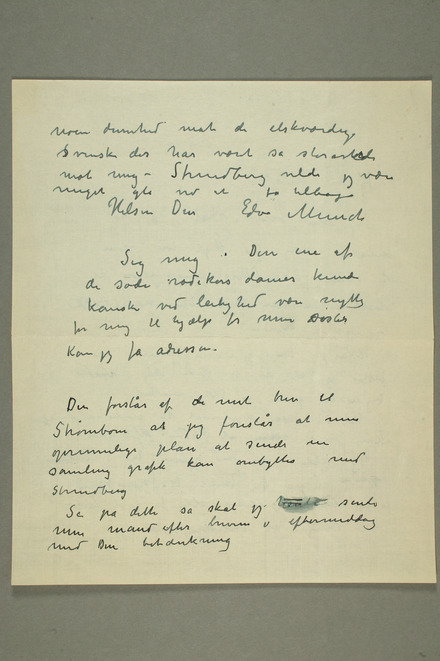 noen dumhed mot de elskværdige
Svensker der har vært så storartede
mot mig – Strindberg vilde jeg være
meget gla ved at få tilbage
Hilsen Din Edv Munch
Sig mig · Den ene af
de søde rødekors damer kunde
kanske ved leilighed være nyttig
for mig til hjælp for min søster
Kan jeg få adressen.
Du forstår af de mit brev til
Strømbom at jeg foreslår at min
oprinnelige plan at sende en
samling grafik kan ombyttes med
Strindberg
Se på dette så skal jeg sende
min mand efter brevet i eftermiddag
med Din betænkning